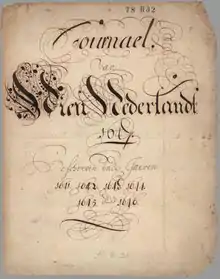 78 H 32
Journael
van
Nieu Nederlandt
1647
Beschreven in de Jaeren
1641 1642 1643 1644
1645 1646